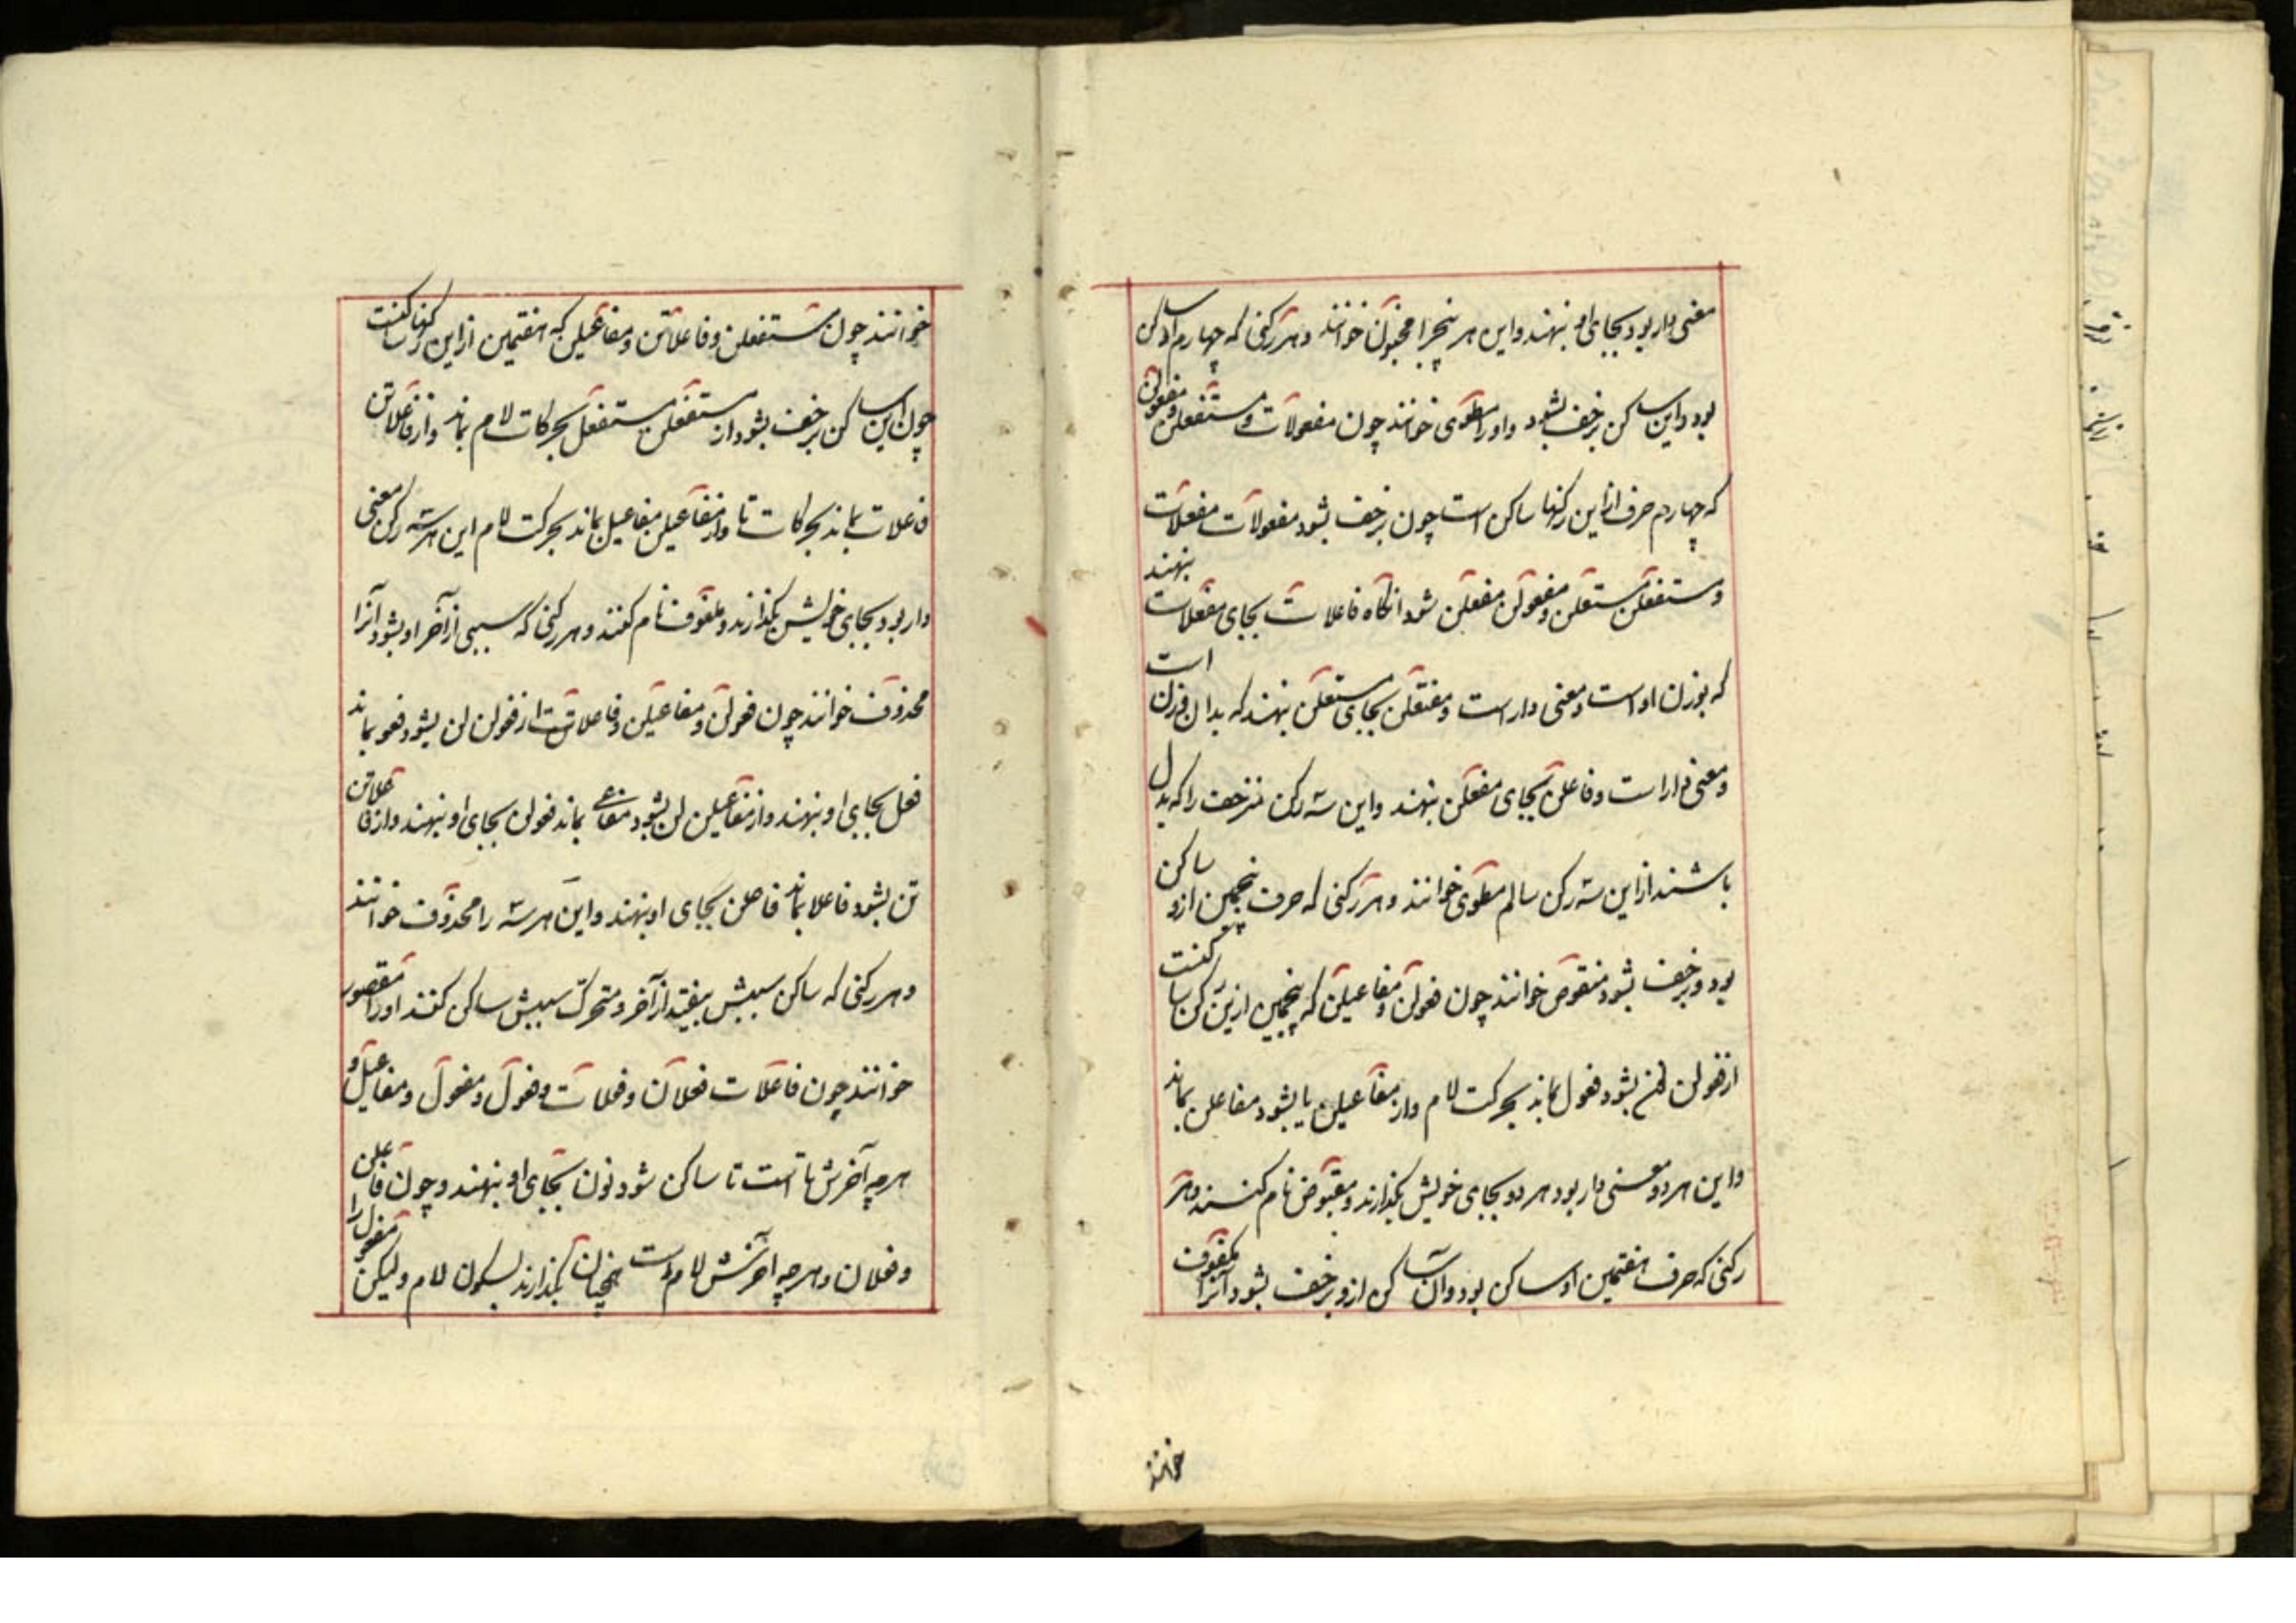 معنی دار بود بجای او بنهند و این هر پنج را مخبون خوانند و هر رکنی که چهارم او ساکن
بود و این ساکن بزحف بشود و او را مطوی خوانند چون مفعولات و مستفعلن و مفعولن
که چهارم حرف از این رکنها ساکن است چون بزحف بشود مفعولات مفعلات
و مستفعلن مستعلن و مفعولن مفعلن شود انکاه فاعلات بجای مفعلات بنهند
که بوزن او است و معنی دار است و مفتعلن بجای مستعلن بنهند که بدان وزن است
و معنی دار است و فاعلن بجای مفعلن بنهند و این سه رکن مزحف را که بدل
باشند از این سه رکن سالم مطوی خوانند و هر رکنی که حرف پنجمین ازو ساکن
بود و بزحف بشود منقوص خوانند چون فعولن و مفاعیلن که پنجمین ازین رکن ساکنست
از فعولن نون بشود فعول بماند بحرکت لام و از مفاعیلن یا بشود مفاعلن بماند
و این هر دو معنی دار بود هر دو بجای خویش بگذارند و مقبوض نام کنند و هر
رکنی که حرف هفتمین او ساکن بود و آن ساکن ازو بزحف بشود آنرا مکفوف
خوانند
خوانند چون مستفعلن و فاعلاتن و مفاعیلن که هفتمین از این رکنها ساکنست
چون این ساکن بزحف بشود از مستفعلن مستفعل بحرکات لام بماند و از فاعلاتن
فاعلات بماند بحرکات تا و از مفاعیلن مفاعیل بماند بحرکت لام این هر سه رکن معنی
دار بود بجای خویش بگذارند و مکفوف نام کنند و هر رکنی که سببی از آخر او بشود آنرا
محذوف خوانند چون فعولن و مفاعیلن و فاعلاتن از فعولن لن بشود فعو بماند
فعل بجای او بنهند و از مفاعیلن لن بشود مفاعی بماند فعولن بجای او بنهند و از فاعلاتن
تن بشود فاعلا بماند فاعلن بجای او بنهند و این هر سه را محذوف خوانند
و هر رکنی که ساکن سببش بیفتد از آخر و متحرک سببش ساکن کنند او را مقصور
خوانند چون فاعلات فعلان و فعلات و فعول و مفعول و مفاعیل و
هرچه آخرش تا است تا ساکن شود نون بجای او بنهند و چون فاعلن
و فعلان و هر چه آخرش لام است همچنان بگذارند بسکون لام و لیکن مفعول را